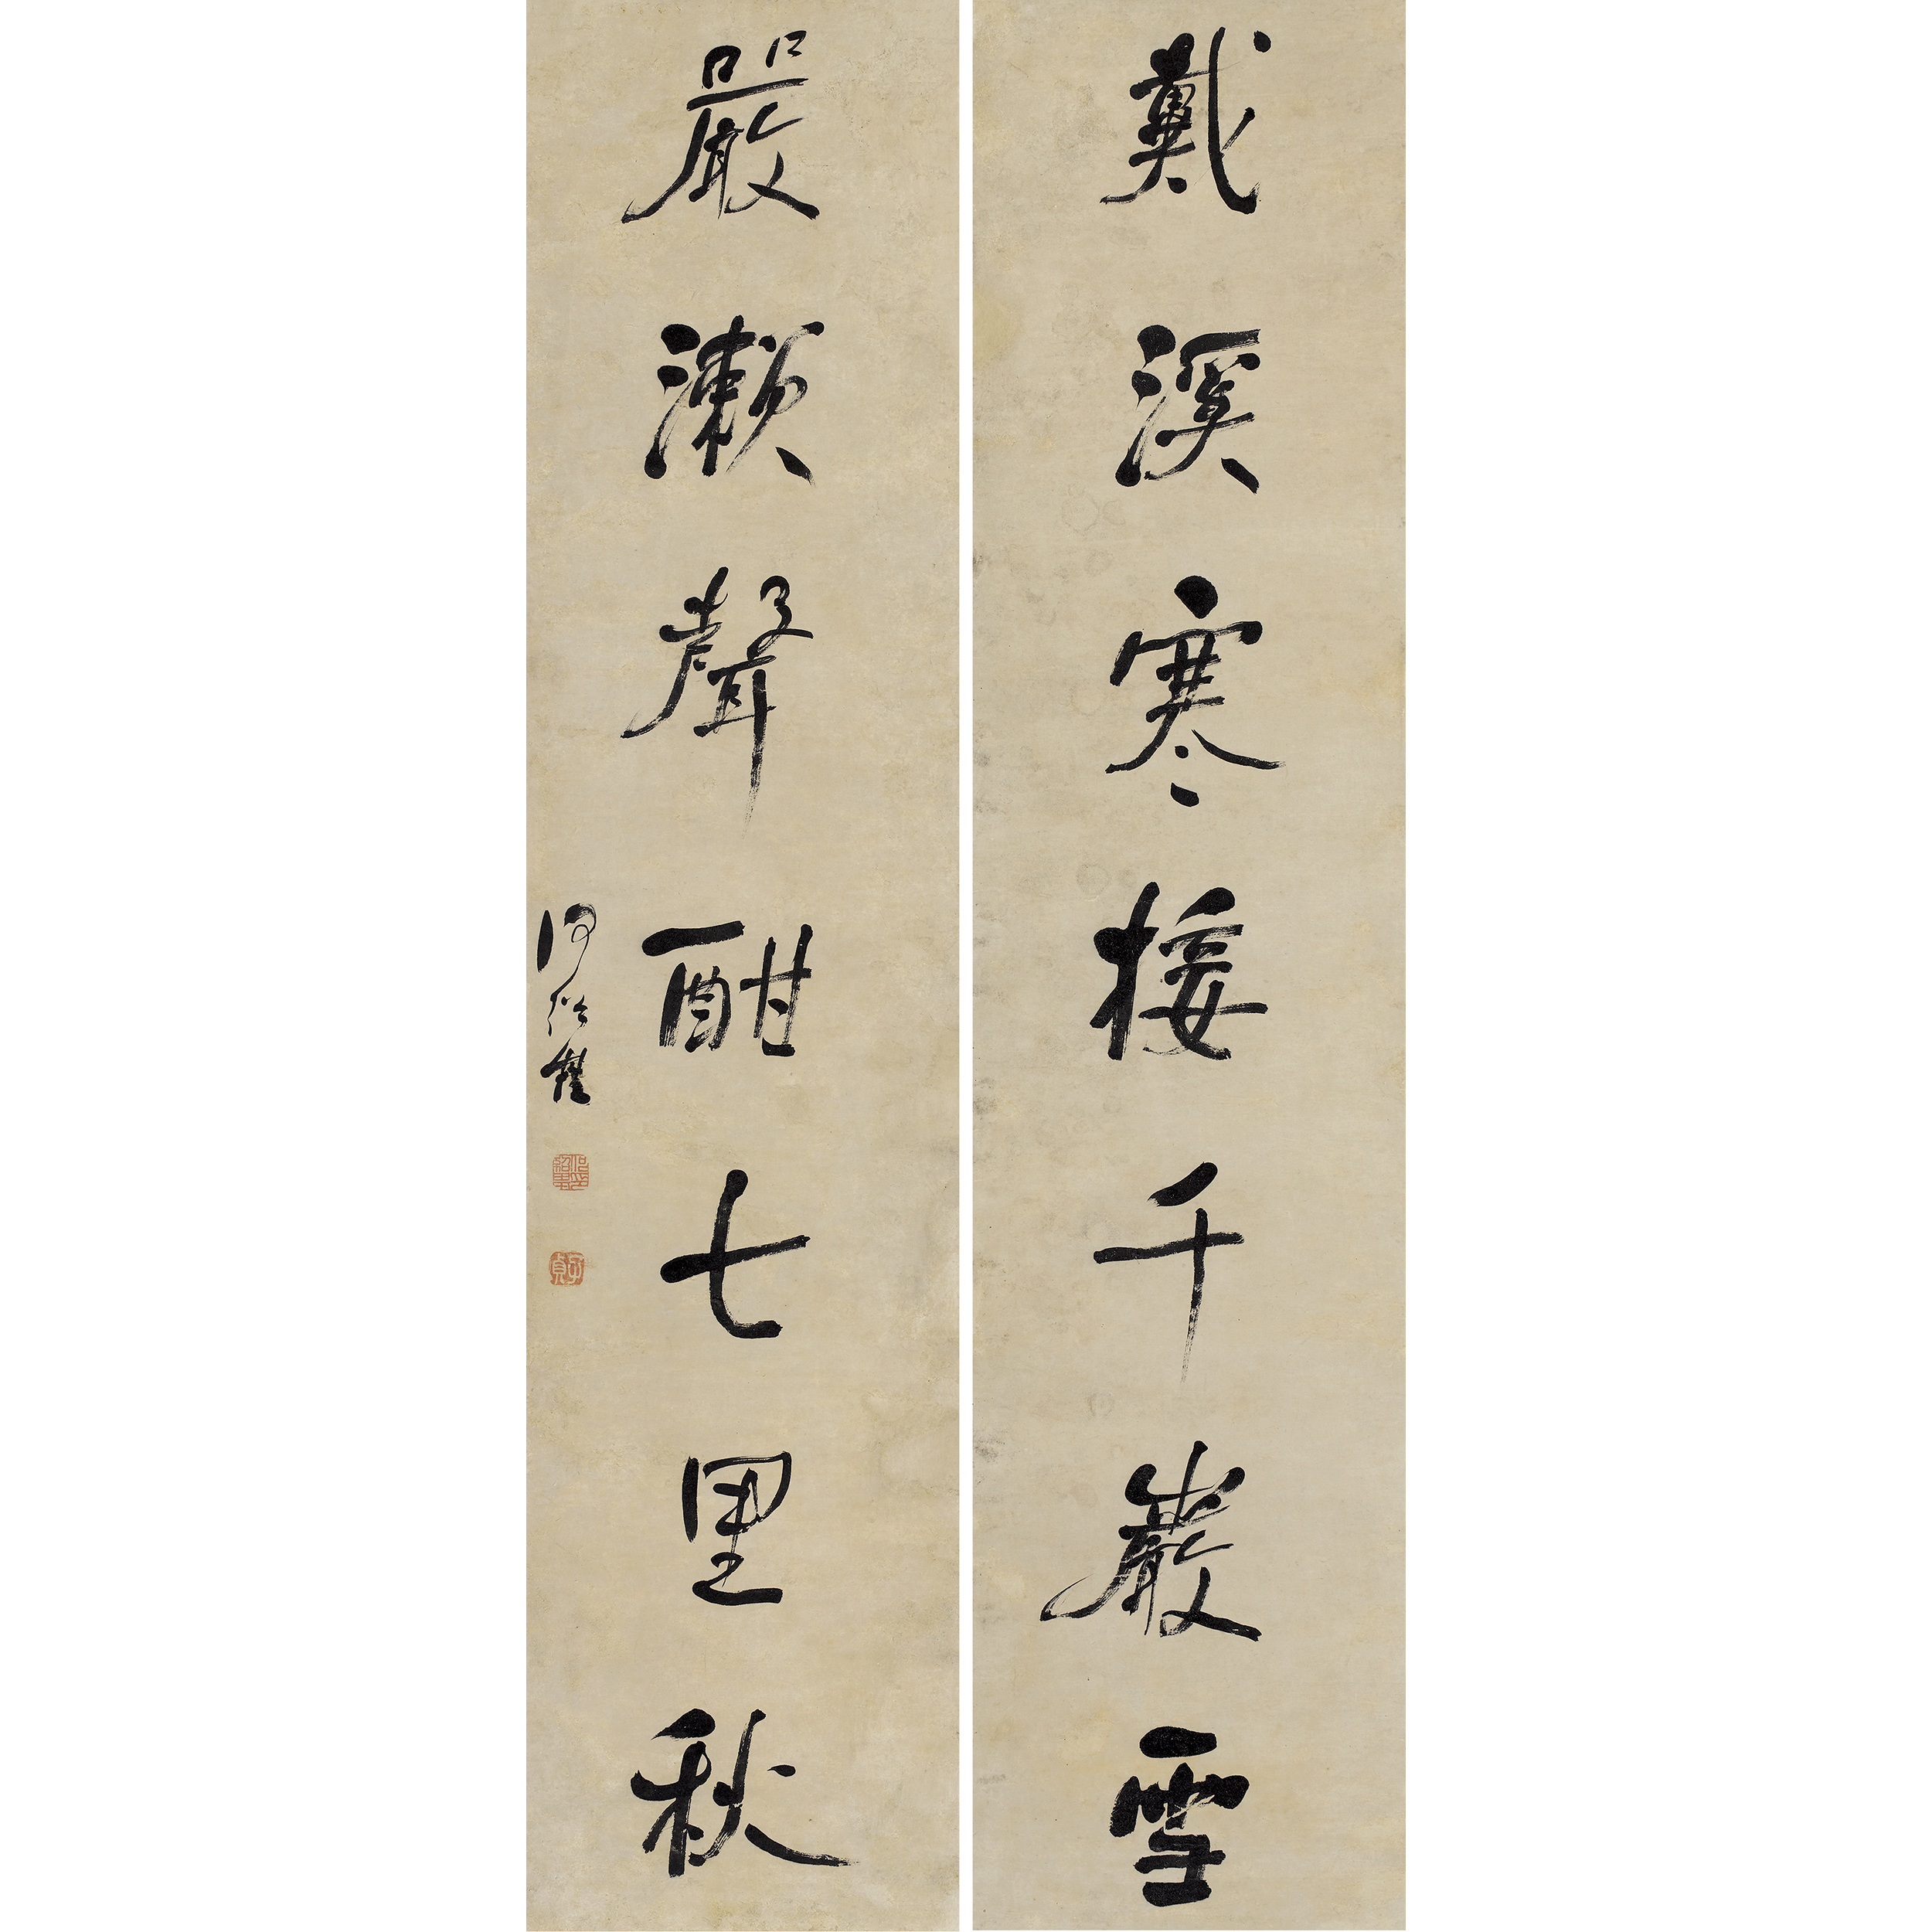 戴溪寒接千巖雪
嚴瀨聲酣七里秋
何紹基
子貞